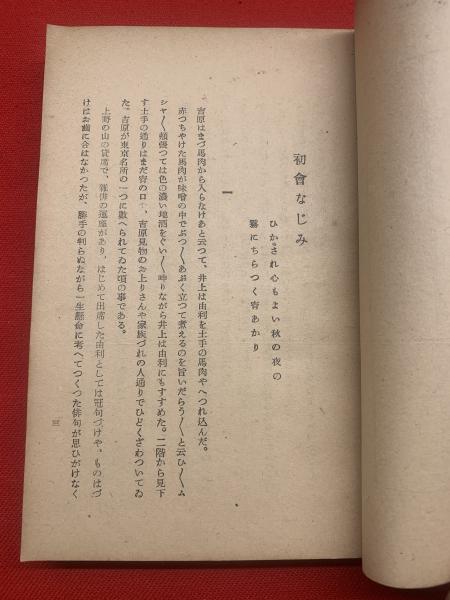 初會なじみ
ひかされ心もよい秋の夜の
靄にちらつく宵あかり
一
吉原はまづ馬肉から入らなけあと云つて、井上は由利を土手の馬肉やへつれ込んだ。
赤つちやけた馬肉が味噌の中でぶつ〳〵あぶく立つて煮えるのを旨いだらう〳〵と云ひ〳〵ム
シヤ〳〵頰張つては色の濃い地酒をぐい〳〵呷りながら井上は由利にもすすめた。二階から見下
す土手の通りはまだ宵の口で、吉原見物のお上りさんや家族づれの人通りでひどくざわついてゐ
た。吉原が東京名所の一つに數へられてゐた頃の事である。
上野の山の貸席で、雜俳の運座があり、はじめて出席した由利としては冠句づけや、ものはづ
けはお齒に合はなかつたが、勝手の判らぬながら一生懸命に考へてつくつた俳句が思ひがけなく
三